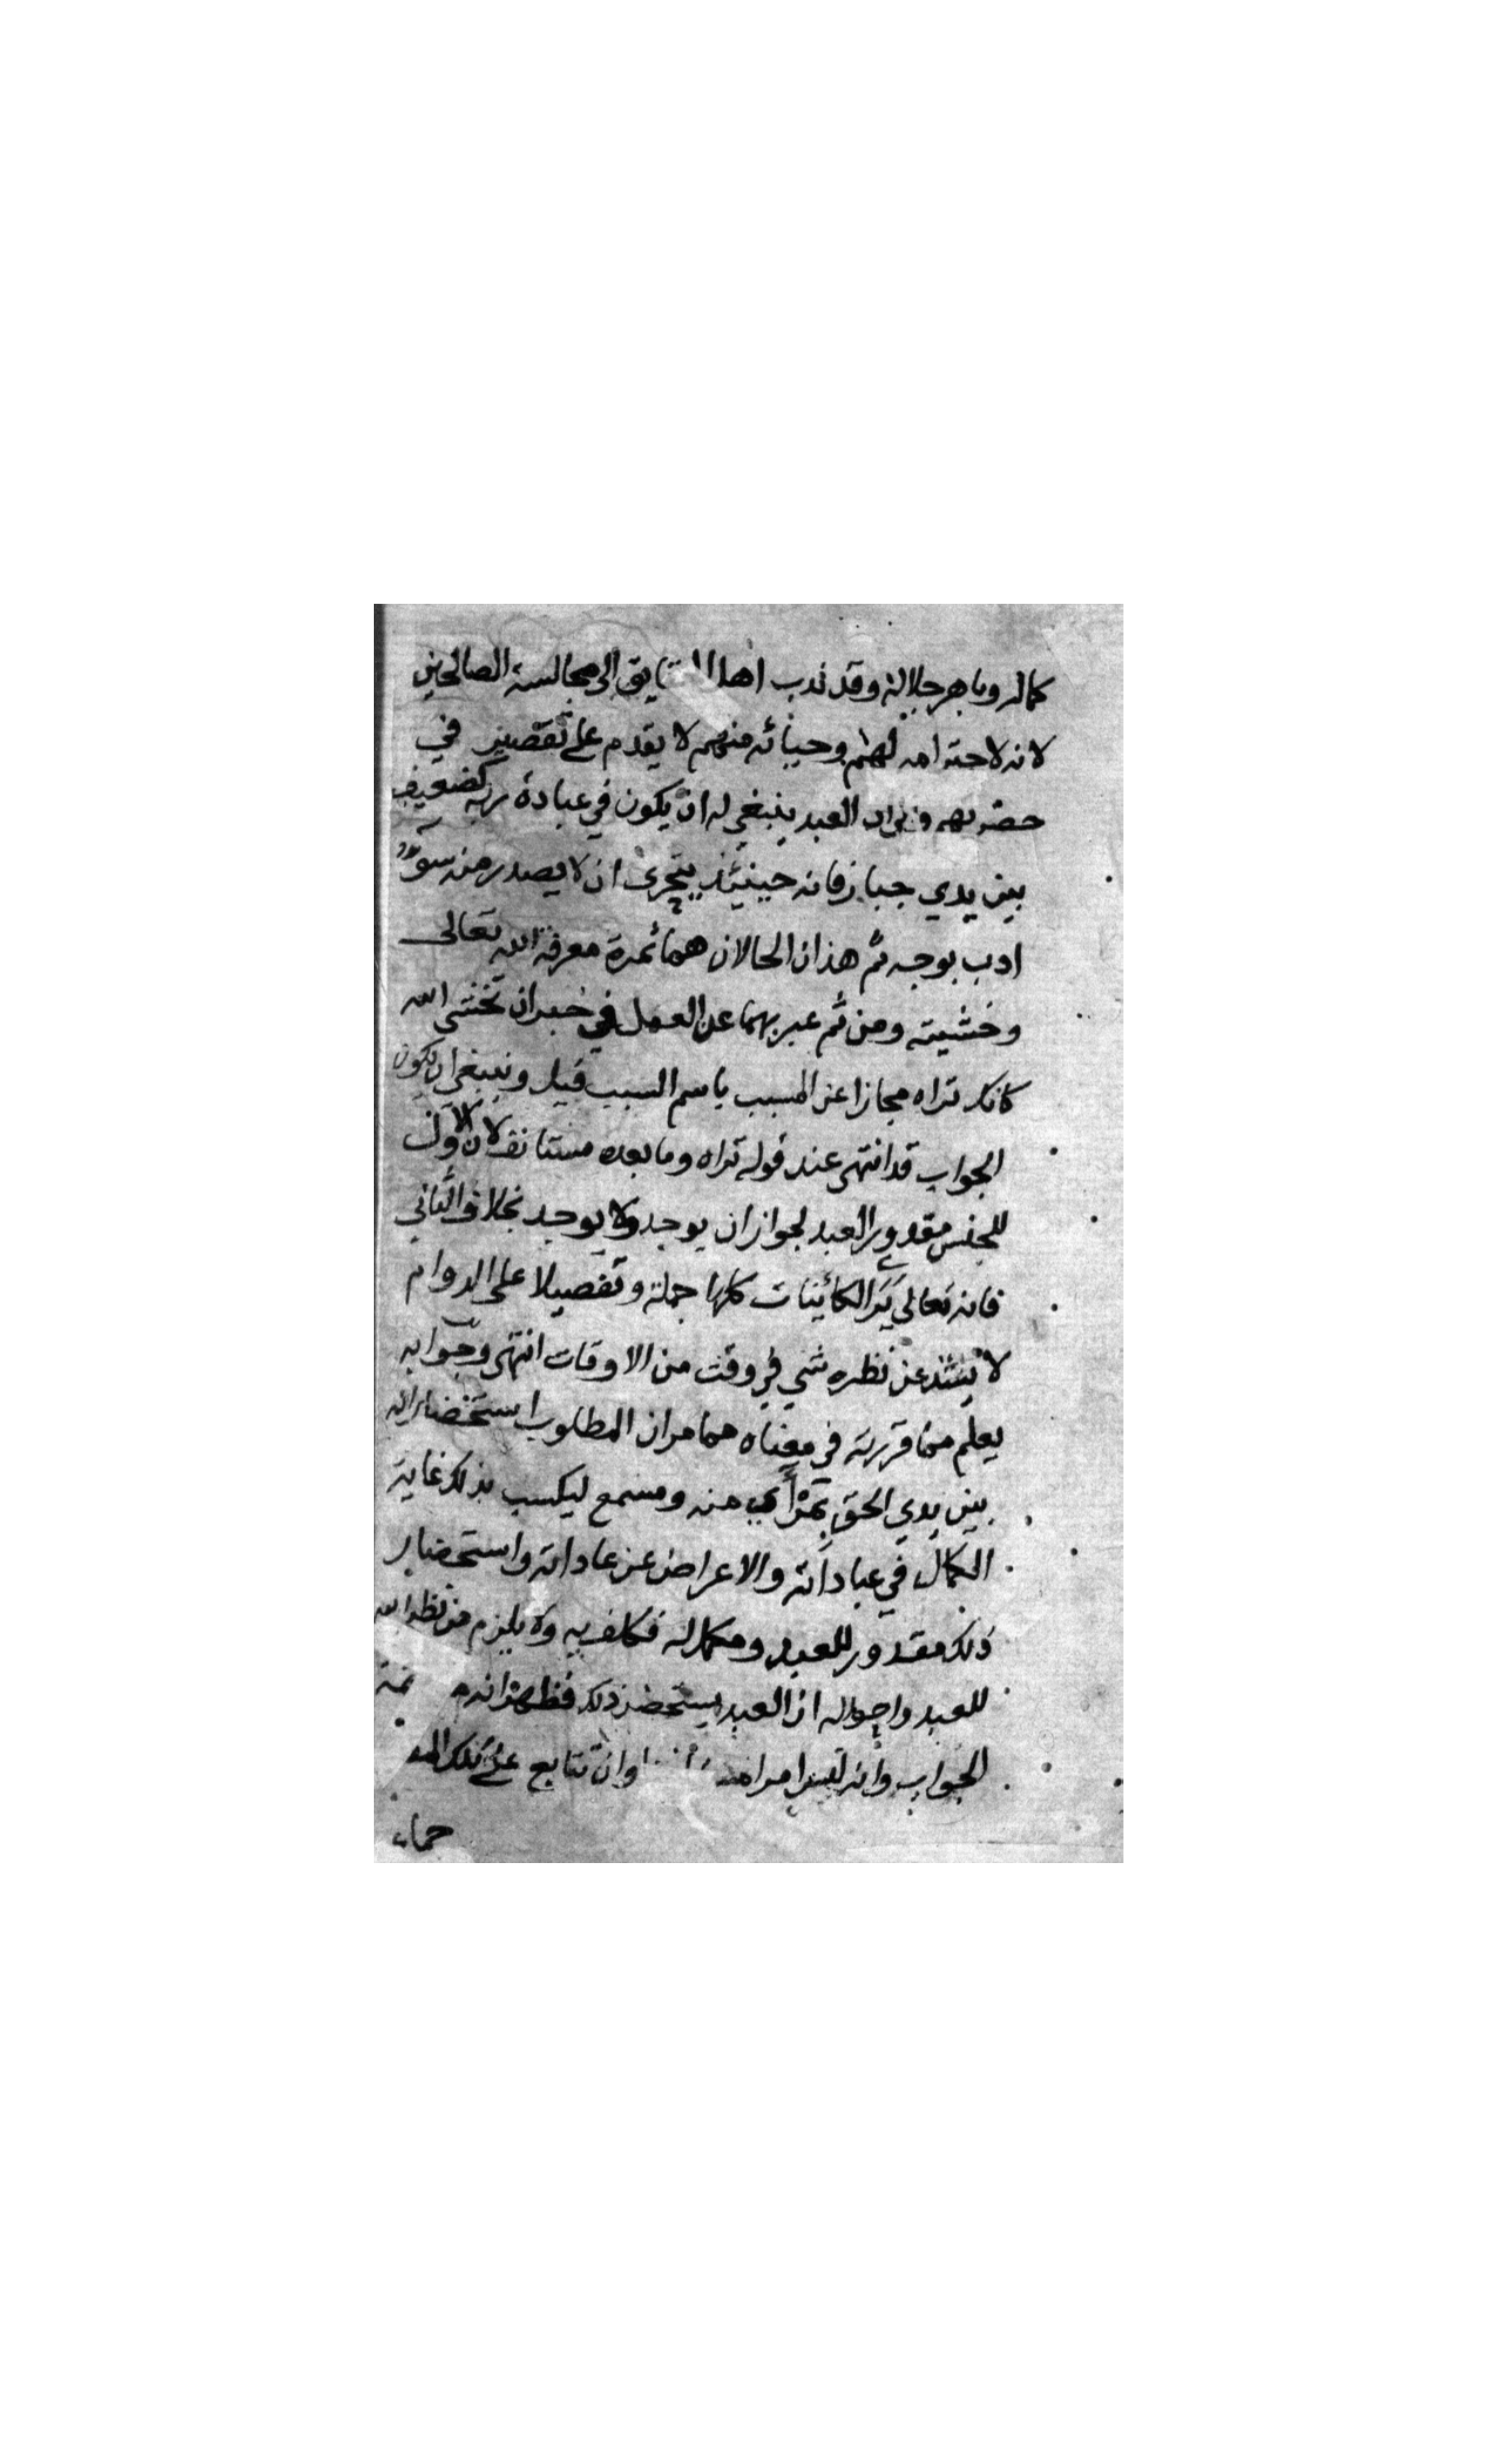 كماله وباهر جلاله وقد ندب اهل الحقايق الى مجالسة الصالحين
لانه لاحترامه لهم وحيائه منهم لا يقدم على تقصير في
حضرتهم والعبد ينبغي له ان يكون في عبادة ربه كضعيف
بين يدي جبار فانه حينئذ يتحرى ان لا يصدر منه سوء
ادب بوجه ثم هذان الحالان هما ثمرة معرفة الله تعالى
وخشيته ومن ثم عبر بهما عن العمل في خبر ان تخشى الله
كانك تراه مجازا عن المسبب باسم السبب قيل وينبغي ان يكون
الجواب قد انتهى عند قوله تراه وما بعده مستانف لان الاول
للجنس مقدور العبد لجواز ان يوجد ولا يوجد بخلاف الثاني
فانه تعالى يرى الكائنات كلها جملة وتفصيلا على الدوام
لا يشذ عن نظره شي في وقت من الاوقات انتهى وجوابه
يعلم مما قررته في معناه مما مر ان المطلوب استحضار انه
بين يدي الحق بمرأي منه ومسمع ليكسب بذلك غاية
الكمال في عباداته والاعراض عن عاداته واستحضار
ذلك مقدور للعبد ومكمل له فكلف به ولا يلزم من نظر الله
للعبد واحواله ان العبد يستحضر ذلك فظهر انه تتمة
الجواب وانه ليس امرا وان تتابع على ذلك